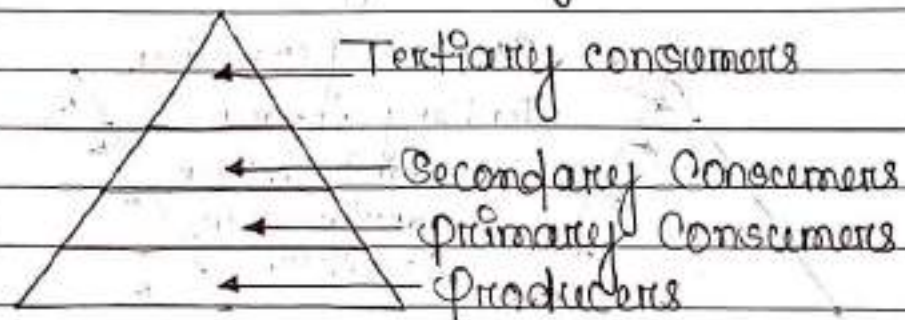 Tertiary consumers
Secondary Consumers
primary Consumers
producers